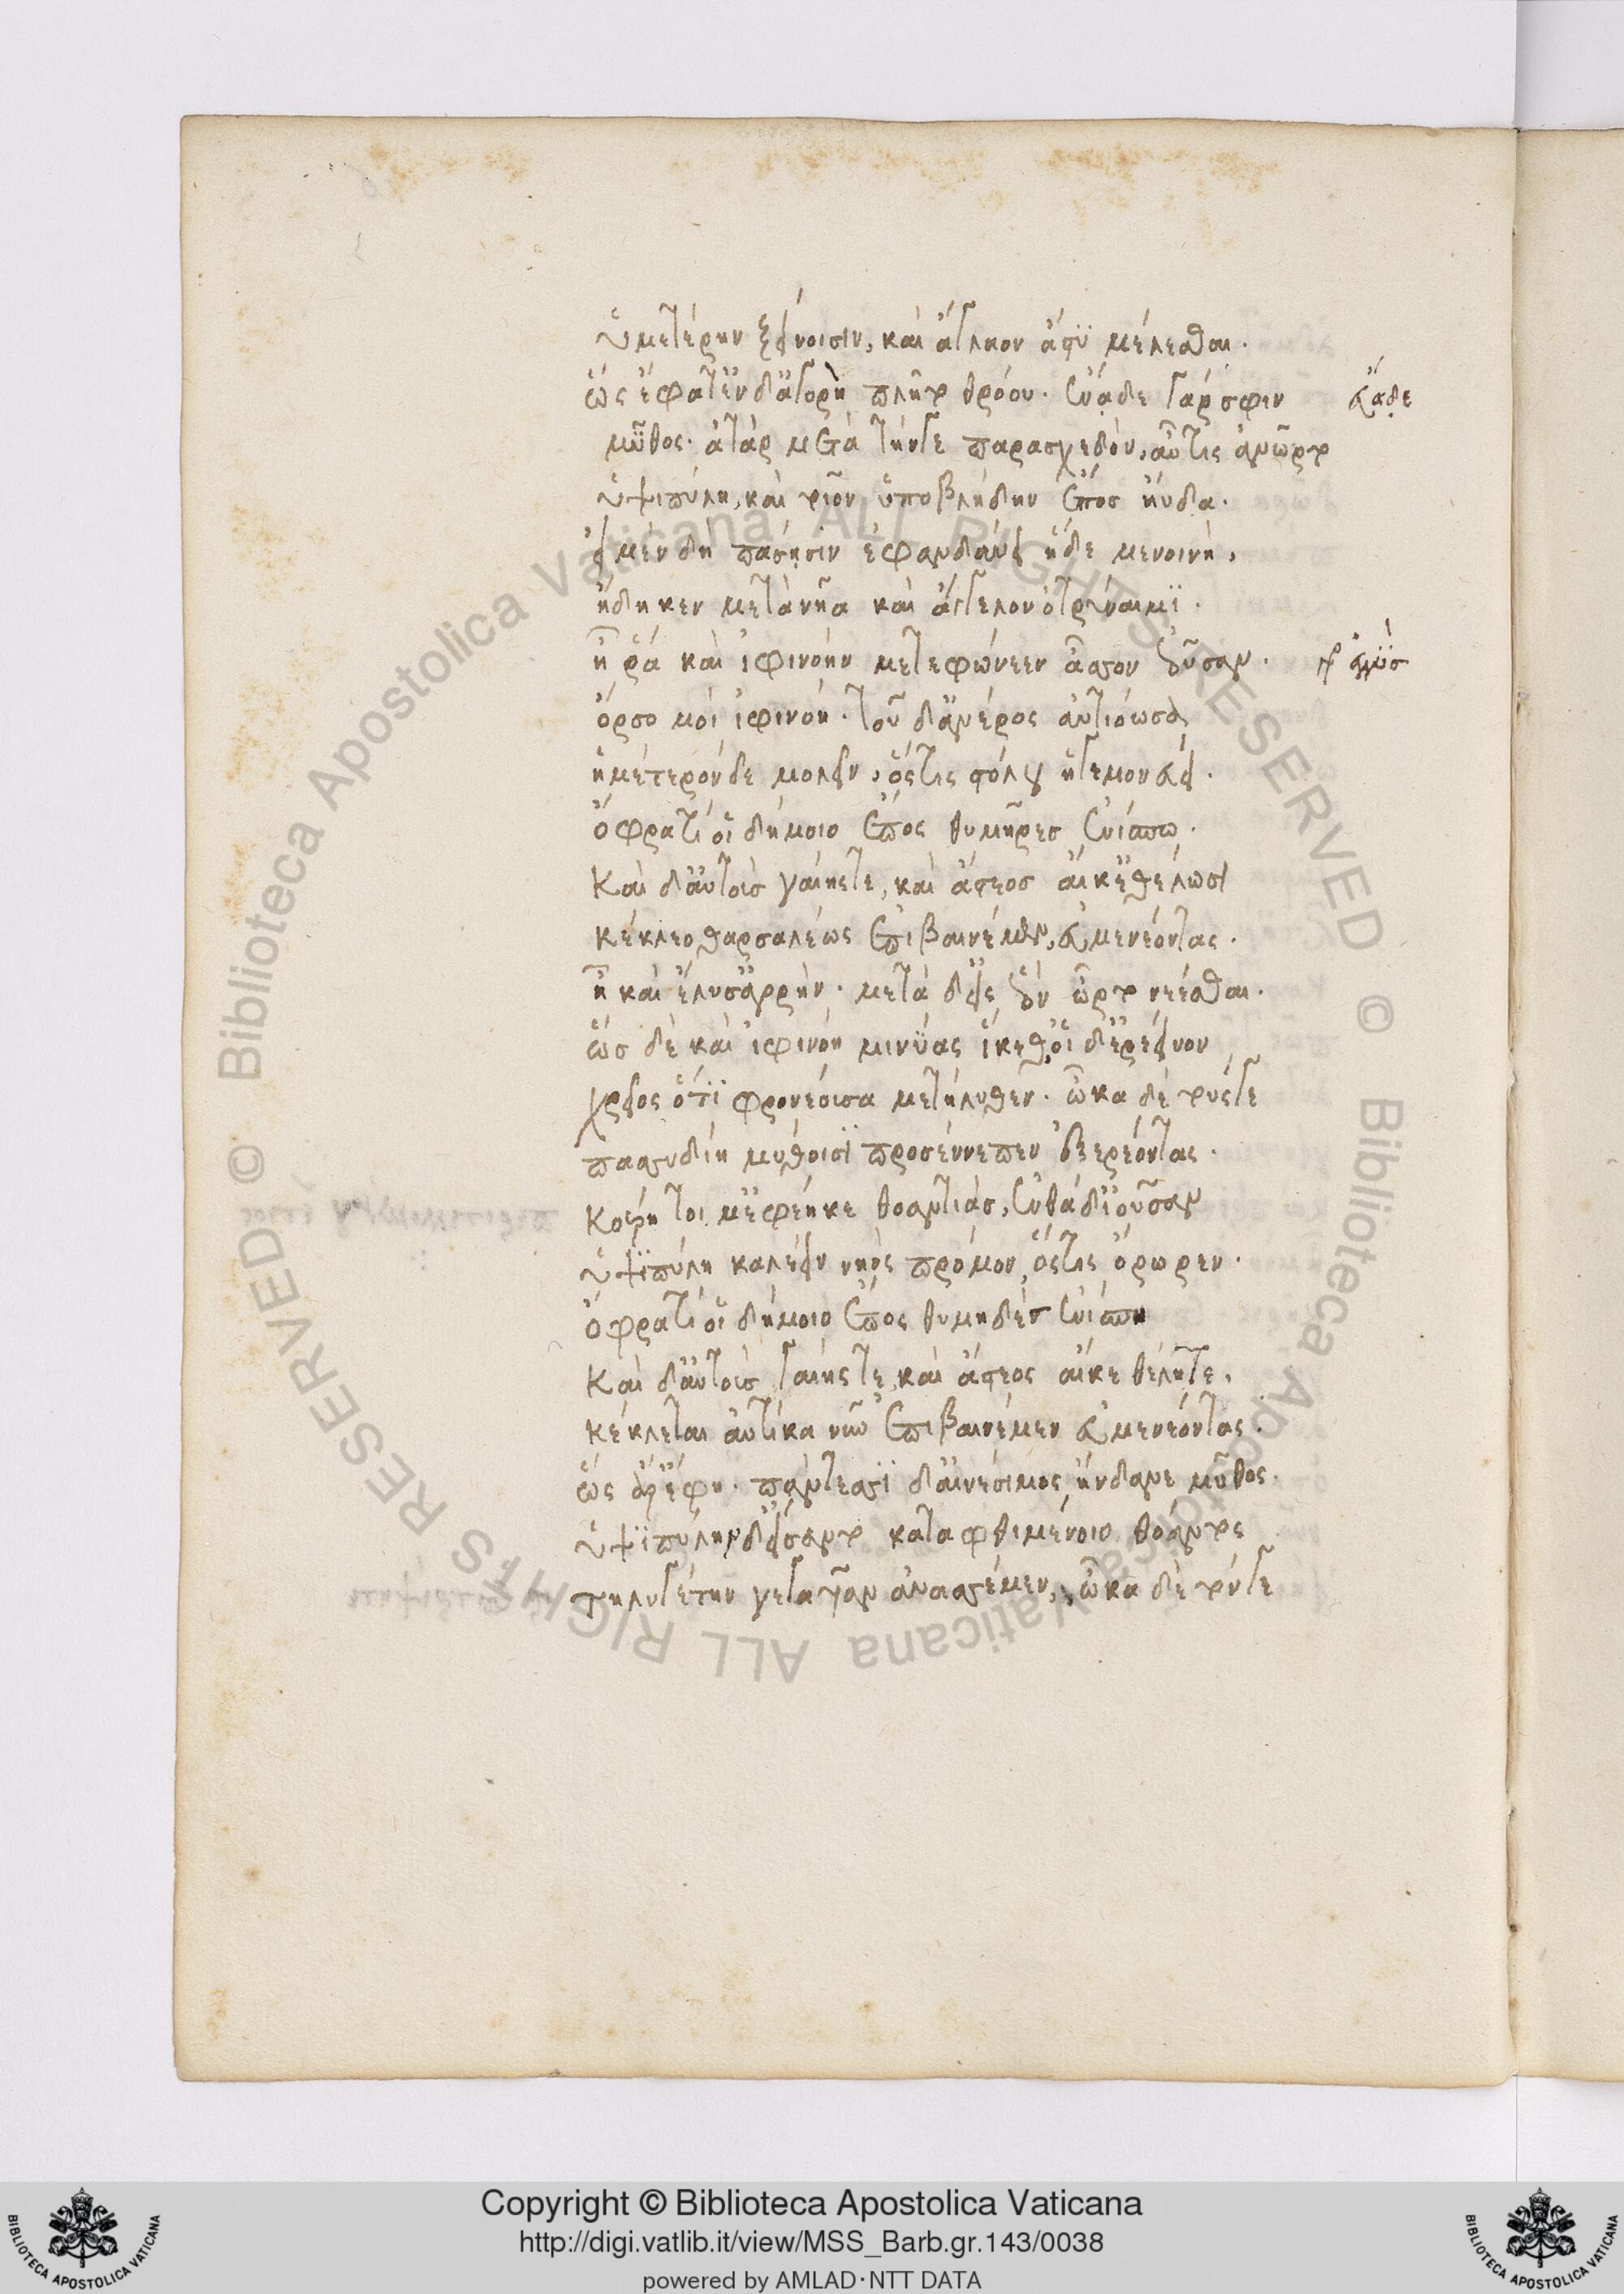 ὑμετέρην ξείνοισιν, καὶ ἀγλαὸν ἄστυ μέλεσθαι.
ὣς ἔφατ' ἐν δ' ἀγορῇ πλῆτο θρόου. εὔαδε γάρ σφιν εὔαδε
μῦθος. ἀτὰρ μετὰ τήνγε παρασχεδὸν, αὖτις ἀνῶρτο
ὑψιπύλη, καὶ τοῖον ὑποβλήδην ἔπος ηὔδα.
εἰ μὲν δὴ πάσῃσιν ἐφανδάνει ἥδε μενοινὴ,
ἤδη κεν μετὰ νῆα καὶ ἄγγελον ὀτρύναιμι.
ἦ ῥά καὶ ἰφινόην μετεφώνεεν ἆσσον ἐοῦσαν.
ὄρσο μοι ἰφινόη. τοῦδ' ἀνέρος ἀντιόωσα
ἡμέτερόνδε μολεῖν, ὅστις στόλου ἡγεμονεύει.
ὄφρα τί οἱ δήμοιο ἔπος θυμῆρες ἐνίσπω.
Καὶ δ' αὐτοὺς γαίης τε, καὶ ἄστεος αἴ κ' ἐθέλωσι
κέκλεο θαρσαλέως ἐπιβαινέμεν, εὐμενέοντας.
ἦ καὶ ἔλυσ' ἀγορὴν. μετὰ δ' εἰς ἑὸν ὦρτο νέεσθαι.
ὣς δὲ καὶ ἰφινόη μινύας ἵκεθ' οἱ δ' ἐρέεινον
χρεῖος ὅ,τι φρονέουσα μετήλυθεν. ὦκα δὲ τούςγε
πασσυδίῃ μύθοισι προσέννεπεν ἐξερέοντας.
Κούρη τοι μ' ἐφέηκε θοαντιὰς, ἐνθάδ' ἰοῦσαν
ὑψιπύλη καλέειν νηὸς πρόμον, ὅστις ὄρωρεν.
ὄφρα τί οἱ δήμοιο ἔπος θυμηδὲς ἐνίσπῃ
Καὶ δ' αὐτοὺς γαίης τε, καὶ ἄστεος αἴκε θέλητε,
κέκλεται αὐτίκα νῦν ἐπιβαινέμεν εὐμενέοντας.
ὣς ἄρ' ἔφη. πάντεσσι δ' ἐναίσιμος ἥνδανε μῦθος.
ὑψιπύλην δ' εἴσαντο καταφθιμένοιο θόαντος
τηλυγέτην γεγαυῖαν ἀνασσέμεν, ὦκα δὲ τόνγε